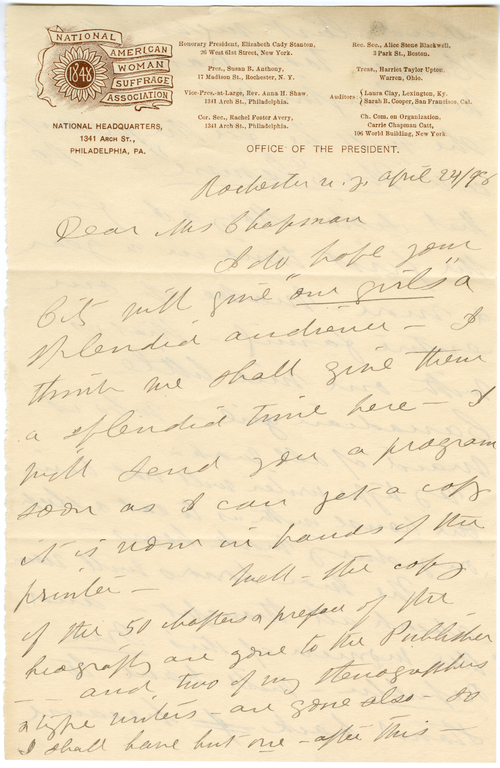 NATIONAL
AMERICAN
WOMAN
SUFFRAGE
ASSOCIATION
1848
NATIONAL HEADQUARTERS,
1341 ARCH ST.,
PHILADELPHIA, PA.
Honorary President, Elizabeth Cady Stanton,
26 West 61st Street, New York.
Pres., Susan B. Anthony,
17 Madison St., Rochester, N. Y.
Vice-Pres.-at-Large, Rev. Anna H. Shaw,
1341 Arch St., Philadelphia.
Cor. Sec., Rachel Foster Avery,
1341 Arch St., Philadelphia.
Rec. Sec., Alice Stone Blackwell,
3 Park St., Boston.
Treas., Harriet Taylor Upton,
Warren, Ohio.
Auditors { Laura Clay, Lexington, Ky.
Sarah B. Cooper, San Francisco, Cal.
Ch. Com. on Organization,
Carrie Chapman Catt,
106 World Building, New York
OFFICE OF THE PRESIDENT.
Rochester N. Y. April 24/98
Dear Mrs Chapman
I do hope your
City will give "our girls" a
splendid audience - I
think we shall give them
a splendid time here - I
will send you a program
soon as I can get a copy
it is now in hands of the
printer - Well - the copy
of the 50 chapters & preface of the
biography are gone to the Publisher
- and two of my stenographers
& type writers - are gone also - so
I shall have but one - after this -